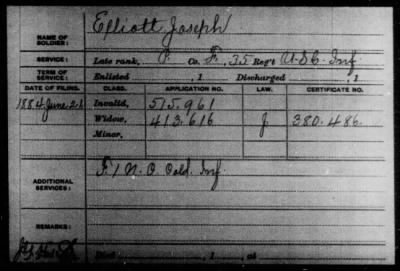 NAME OF SOLDIER: Elliott, Joseph
SERVICE: Late rank, P Co. F, 35 Reg't U.S.C. Inf.
TERM OF SERVICE: Enlisted , 1 Discharged , 1
DATE OF FILING. CLASS. APPLICATION NO. LAW. CERTIFICATE NO.
1884 June 26 Invalid, 515.961
Widow, 413.616 J 380.486.
Minor,
ADDITIONAL SERVICES: F 1 N. C. Cold. Inf
REMARKS:
Died , 1 , at